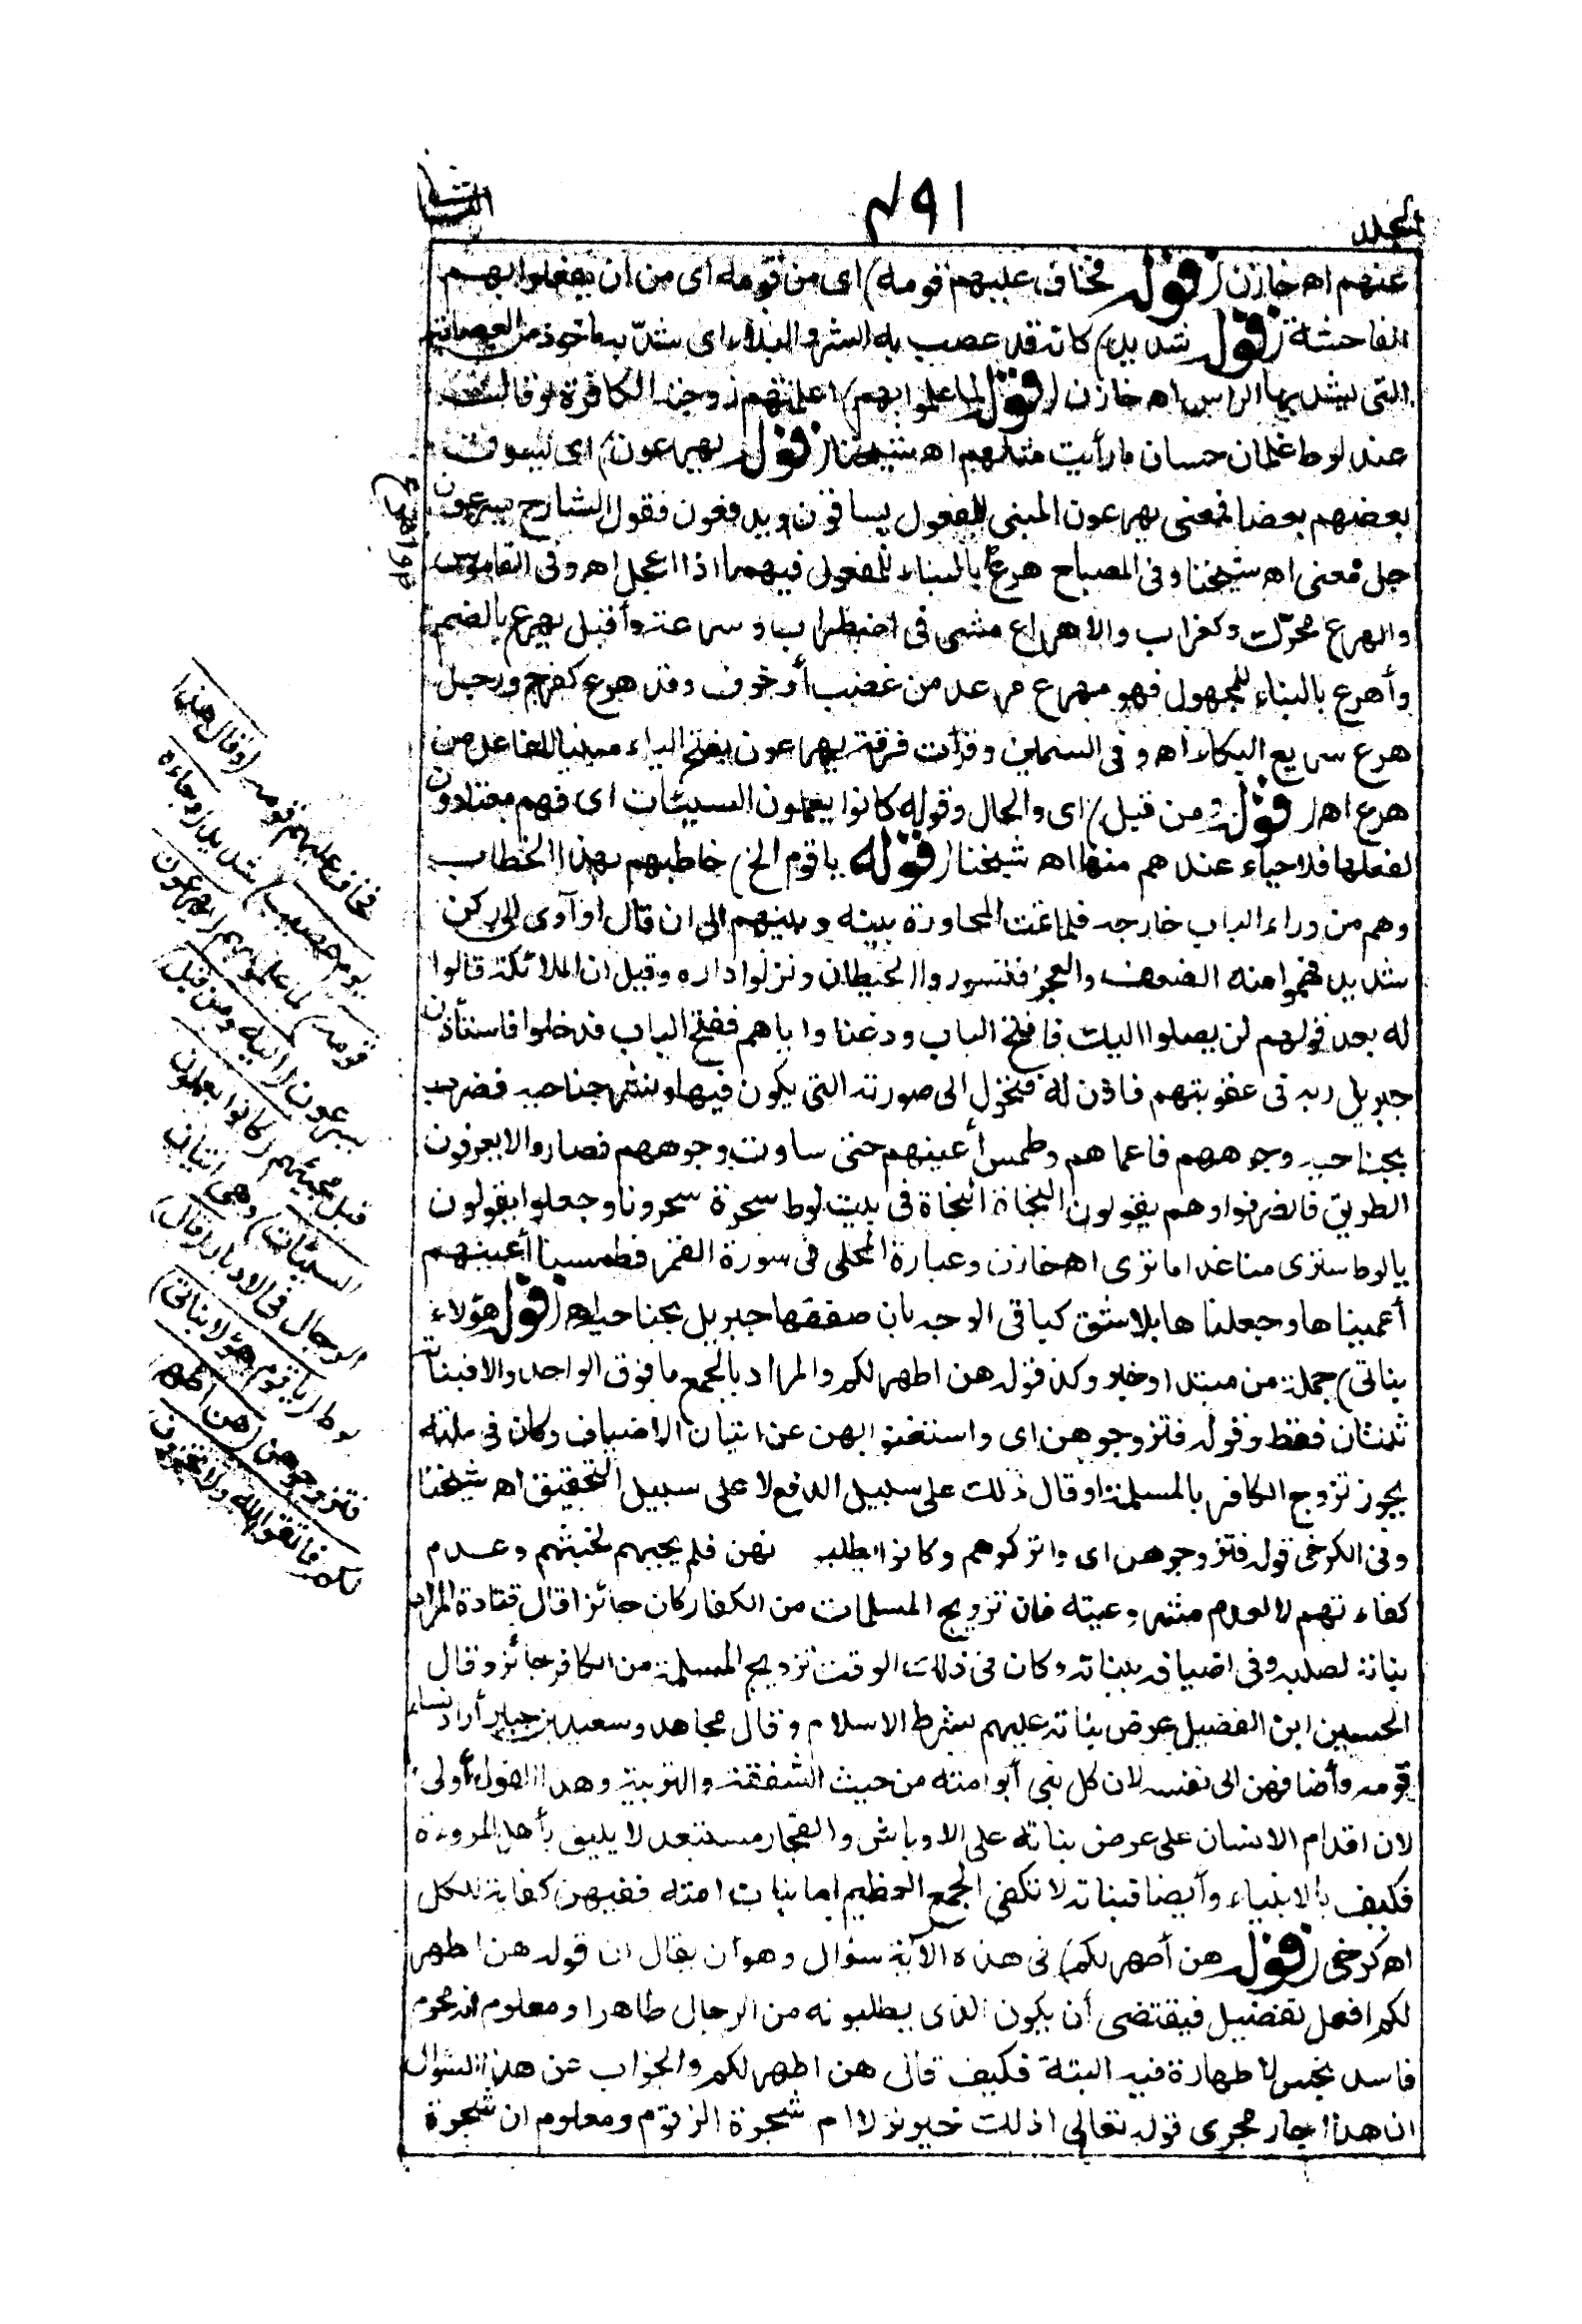 المجلد ٤٩١ الثانى
عنهم اه خازن (قوله فخاف عليهم قومه) اى من قومه اى من ان يفعلوا بهم
الفاحشة (قوله شديد) كانه قد عصب به الشر والبلاء اى شدّ به ماخوذ من العصابة
التى يشد بها الراس اه خازن (قوله لما علموا بهم) اعلمتهم زوجته الكافرة وقالت
عند لوط غلمان حسان ما رأيت مثلهم اه شيخنا (قوله يهرعون) اى يسوق
بعضهم بعضا فمعنى يهرعون المبنى للمفعول يساقون ويدفعون فقول الشارح يسرعون
حل معنى اه شيخنا وفى المصباح هرع بالبناء للمفعول فيهما اذا اعجل اه وفى القاموس
والهرع محرّكة وكغراب والاهراع مشى فى اضطراب وسرعة وأقبل يهرع بالضم
وأهرع بالبناء للمجهول فهو مهرع مرعد من غضب أو خوف وقد هرع كفرح ورجل
هرع سريع البكاء اه وفى السمين وقرأت فرقة يهرعون بفتح الياء مبنيا للفاعل من
هرع اه (قوله ومن قبل) اى والحال وقوله كانوا يعملون السيئات اى فهم معتادون
لفعلها فلا حياء عندهم منها اه شيخنا (قوله ياقوم الخ) خاطبهم بهذا الخطاب
وهم من وراء الباب خارجه فلما تمت المحاورة بينه وبينهم الى ان قال او آوى الى ركن
شديد فهموا منه الضعف والعجز فتسوروا الحيطان ونزلوا داره وقيل ان الملائكة قالوا
له بعد قولهم لن يصلوا اليك فافتح الباب ودعنا واياهم ففتح الباب فدخلوا فاستأذن
جبريل ربه فى عقوبتهم فاذن له فتحول الى صورته التى يكون فيها ونشر جناحيه فضرب
بجناحيه وجوههم فاعماهم وطمس أعينهم حتى ساوت وجوههم فصاروا لا يعرفون
الطريق فانصرفوا وهم يقولون النجاة النجاة فى بيت لوط سحرة سحرونا وجعلوا يقولون
يالوط سترى منا غدا ما ترى اه خازن وعبارة المحلى فى سورة القمر فطمسنا أعينهم
أعميناها وجعلناها بلا شق كباقى الوجه بان صفقها جبريل بجناحيه اه (قوله هؤلاء
بناتى) جملة من مبتدا وخبر وكذ قوله هن اطهر لكم والمراد بالجمع ما فوق الواحد والا فبناته
ثنتان فقط وقوله فتزوجوهن اى واستغنوا بهن عن اتيان الاضياف وكان فى ملته
يجوز تزوج الكافر بالمسلمة او قال ذلك على سبيل الدفع لا على سبيل التحقيق اه شيخنا
وفى الكرخى قوله فتزوجوهن اى واتركوهم وكانوا يطلبو نهن فلم يجبهم لخبثهم وعدم
كفاءتهم لا لعدم مشروعيته فان تزويج المسلمات من الكفار كان جائزا قال قتادة المراد
بناته لصلبه وفى اضيافه ببناته وكان فى ذلك الوقت تزويج المسلمة من الكافر جائز وقال
الحسين ابن الفضيل عرض بناته عليهم بشرط الاسلام وقال مجاهد وسعيد بن جبير أراد نساء
قومه وأضافهن الى نفسه لان كل نبى أبو امته من حيث الشفقة والتربية وهذا القول أولى
لان اقدام الانسان على عرض بناته على الاوباش والفجار مستبعد لا يليق بأهل المروءة
فكيف بالانبياء وأيضا فبناته لا تكفى الجمع العظيم اما بنات امته ففيهن كفاية للكل
اه كرخى (قوله هن أطهر لكم) فى هذه الآية سؤال وهو أن يقال ان قوله هن اطهر
لكم افعل تفضيل فيقتضى أن يكون الذى يطلبونه من الرجال طاهرا ومعلوم انه محرم
فاسد نجس لا طهارة فيه البتة فكيف قال هن اطهر لكم والجواب عن هذا السؤال
ان هذا جار مجرى قوله تعالى اذلك خير نزلا ام شجرة الزقوم ومعلوم ان شجرة
فخاف عليهم قومه (وقال هذا
يوم عصيب) شديد (وجاءه
قومه) لما علموا بهم (يهرعون)
يسرعون (اليه ومن قبل)
قبل مجيئهم (كانوا يعملون
السيئات) وهى اتيان
الرجال فى الادبار (قال)
لوط (ياقوم هؤلاء بناتى)
فتزوجوهن (هن اطهر
لكم فاتقوا الله ولا تخزون